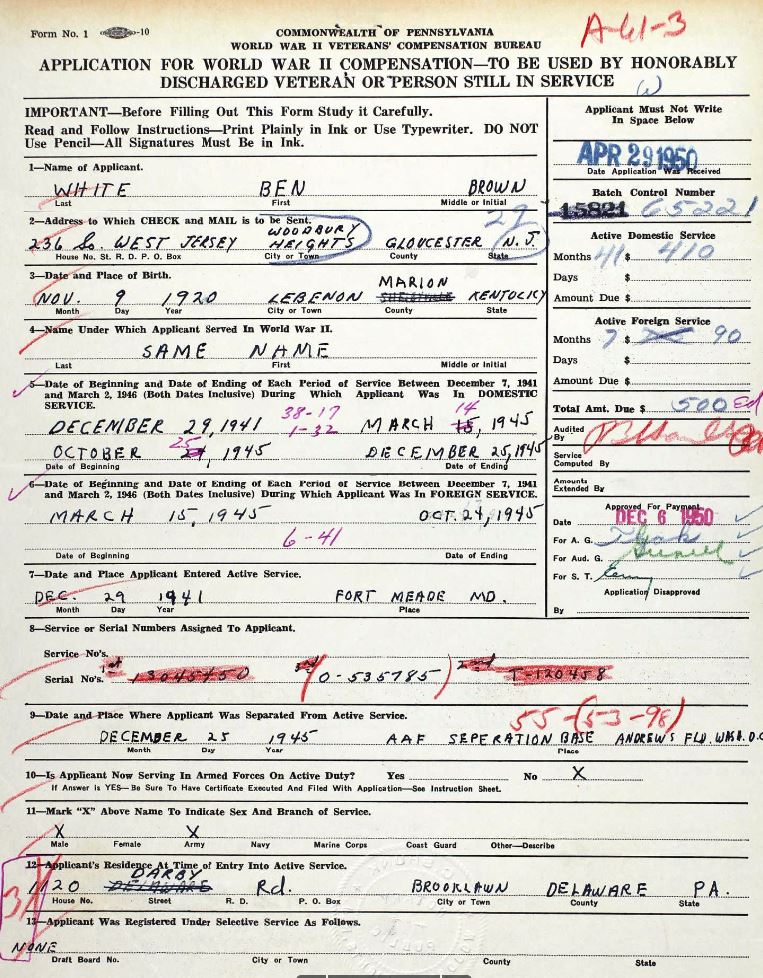 Form No. 1 -10
COMMONWEALTH OF PENNSYLVANIA
WORLD WAR II VETERANS' COMPENSATION BUREAU
A-61-3
APPLICATION FOR WORLD WAR II COMPENSATION—TO BE USED BY HONORABLY
DISCHARGED VETERAN OR PERSON STILL IN SERVICE
IMPORTANT—Before Filling Out This Form Study it Carefully.
Read and Follow Instructions—Print Plainly in Ink or Use Typewriter. DO NOT
Use Pencil—All Signatures Must Be in Ink.
1—Name of Applicant.
WHITE BEN BROWN
Last First Middle or Initial
2—Address to Which CHECK and MAIL is to be Sent.
29
WOODBURY
236 So. WEST JERSEY HEIGHTS GLOUCESTER N.J.
House No. St. R. D. P. O. Box City or Town County State
3—Date and Place of Birth.
MARION
NOV. 9 1920 LEBENON KENTUCKY
Month Day Year City or Town County State
4—Name Under Which Applicant Served In World War II.
SAME NAME
Last First Middle or Initial
5—Date of Beginning and Date of Ending of Each Period of Service Between December 7, 1941
and March 2, 1946 (Both Dates Inclusive) During Which Applicant Was In DOMESTIC
SERVICE.
38-17 14
DECEMBER 29, 1941 1-32 MARCH 15, 1945
25
OCTOBER 24, 1945 DECEMBER 25, 1945
Date of Beginning Date of Ending
6—Date of Beginning and Date of Ending of Each Period of Service Between December 7, 1941
and March 2, 1946 (Both Dates Inclusive) During Which Applicant Was In FOREIGN SERVICE.
MARCH 15, 1945 OCT. 24, 1945
6-41
Date of Beginning Date of Ending
7—Date and Place Applicant Entered Active Service.
DEC. 29 1941 FORT MEADE MD.
Month Day Year Place
Applicant Must Not Write
In Space Below
APR 29 1950
Date Application Was Received
Batch Control Number
15821 65221
Active Domestic Service
Months 41 $ 410
Days $
Amount Due $
Active Foreign Service
Months 7 $ 90
Days $
Amount Due $
Total Amt. Due $ 500
Audited
By
Service
Computed By
Amounts
Extended By
Approved For Payment
Date DEC 6 1950
For A. G.
For Aud. G.
For S. T.
Application Disapproved
By
8—Service or Serial Numbers Assigned To Applicant.
Service No's.
1st 3rd 2nd
Serial No's. 13045450 (0-535785) T-120458
9—Date and Place Where Applicant Was Separated From Active Service.
55-(53-98)
DECEMBER 25 1945 AAF SEPERATION BASE ANDREWS FLD. WASH. D.C.
Month Day Year Place
10—Is Applicant Now Serving In Armed Forces On Active Duty? Yes No X
If Answer is YES—Be Sure To Have Certificate Executed And Filed With Application—See Instruction Sheet.
11—Mark "X" Above Name To Indicate Sex and Branch of Service.
X X
Male Female Army Navy Marine Corps Coast Guard Other—Describe
12—Applicant's Residence At Time of Entry Into Active Service.
DARBY
1120 DELAWARE Rd. BROOKLAWN DELAWARE PA.
House No. Street R. D. P. O. Box City or Town County State
13—Applicant Was Registered Under Selective Service As Follows.
NONE
Draft Board No. City or Town County State